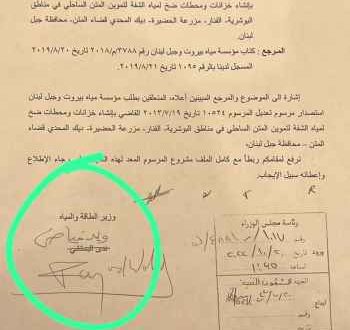 بإنشاء خزانات ومحطات ضخ لمياه الشفة لتموين المتن الساحلي في مناطق
البوشرية- الفنار، مزرعة الحضيرة، ديك المحدي قضاء المتن- محافظة جبل
لبنان.
المرجع : كتاب مؤسسة مياه بيروت وجبل لبنان رقم ٣٧٨٨/م/٢٠١٨ تاريخ ٢٠١٩/٨/٢٠
المسجل لدينا بالرقم ١٠٩٥ تاريخ ٢٠١٩/٨/٢١
إشارة الى الموضوع والمرجع المبينين أعلاه، المتعلقين بطلب مؤسسة مياه بيروت وجبل لبنان
استصدار مرسوم تعديل المرسوم ١٠٥٢٤ تاريخ ٢٠١٣/٧/١٩ القاضي بإنشاء خزانات ومحطات ضخ
لمياه الشفة لتموين المتن الساحلي في مناطق البوشرية، الفنار، مزرعة الحضيرة، ديك المحدي قضاء
المتن – محافظة جبل لبنان،
نرفع لمقامكم ربطاً مع كامل الملف مشروع المرسوم المعد لهذه جاء الإطلاع
وإعطائه سبيل الإيجاب.
وزير الطاقة والمياه
وليد فياض
رئاسة مجلس الوزراء